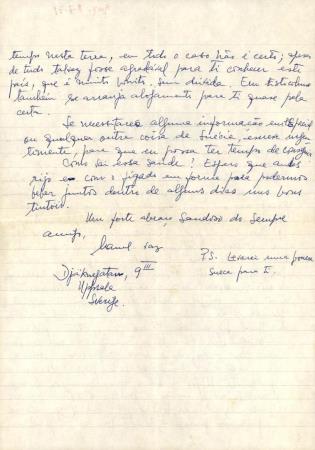 tempo nesta terra, em todo o caso não é certo, apesar
de tudo talvez fosse agradável para ti conhecer este
país, que é muito bonito, sem dúvida. Em Estocolmo
também se arranja alojamento para ti quase pela
certa.
Se necessitares alguma informação
ou qualquer outra coisa da Suécia, escreve
para que eu possa ter tempo de
Como vai essa saude? Espero que andes
rijo e com o fígado em forma para podermos
beber juntos dentro de alguns dias uns bons
tintois.
Um forte abraço, saudoso do sempre
amigo,
Manel Vaz
9 III
Uppsala
Sverige.
P.S. Levarei uma
sueca para ti.